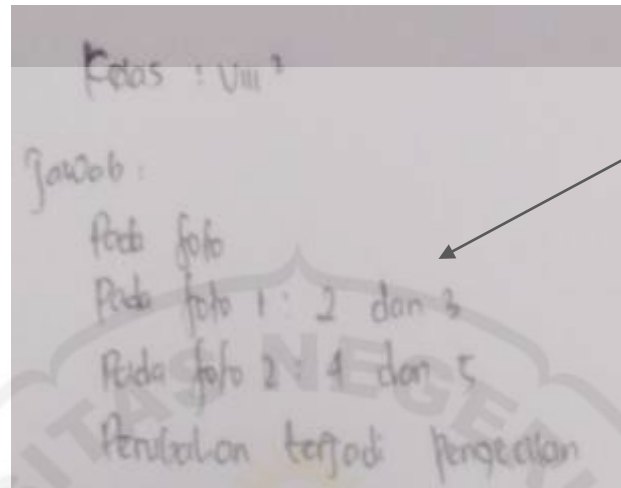 Kelas : VIII 3
Jawab :
Pada foto
Pada foto 1 : 2 dan 3
Pada foto 2 : 4 dan 5
Perubahan terjadi pengecilan
ITAS NEGER